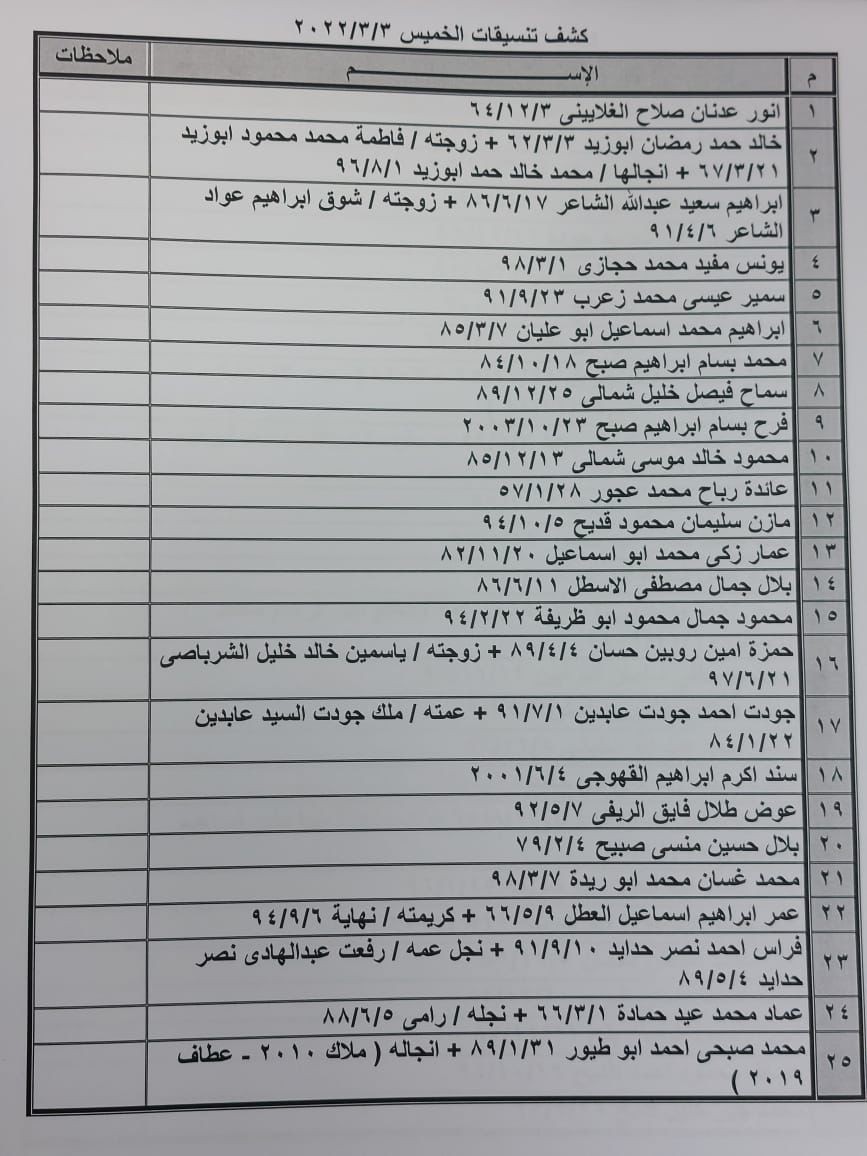 كشف تنسيقات الخميس ٢٠٢٢/٣/٣
م الإســـــــم ملاحظات
١ انور عدنان صلاح الغلايينى ٦٤/١٢/٣
٢ خالد حمد رمضان ابوزيد ٦٢/٣/٣ + زوجته / فاطمة محمد محمود ابوزيد
٦٧/٣/٢١ + انجالها / محمد خالد حمد ابوزيد ٩٦/٨/١
٣ ابراهيم سعيد عبدالله الشاعر ٨٦/٦/١٧ + زوجته / شوق ابراهيم عواد
الشاعر ٩١/٤/٦
٤ يونس مفيد محمد حجازى ٩٨/٣/١
٥ سمير عيسى محمد زعرب ٩١/٩/٢٣
٦ ابراهيم محمد اسماعيل ابو عليان ٨٥/٣/٧
٧ محمد بسام ابراهيم صبح ٨٤/١٠/١٨
٨ سماح فيصل خليل شمالى ٨٩/١٢/٢٥
٩ فرح بسام ابراهيم صبح ٢٠٠٣/١٠/٢٣
١٠ محمود خالد موسى شمالى ٨٥/١٢/١٣
١١ عائدة رباح محمد عجور ٥٧/١/٢٨
١٢ مازن سليمان محمود قديح ٩٤/١٠/٥
١٣ عمار زكى محمد ابو اسماعيل ٨٢/١١/٢٠
١٤ بلال جمال مصطفى الاسطل ٨٦/٦/١١
١٥ محمود جمال محمود ابو ظريفة ٩٤/٢/٢٢
١٦ حمزة امين روبين حسان ٨٩/٤/٤ + زوجته / ياسمين خالد خليل الشرباصى
٩٧/٦/٢١
١٧ جودت احمد جودت عابدين ٩١/٧/١ + عمته / ملك جودت السيد عابدين
٨٤/١/٢٢
١٨ سند اكرم ابراهيم القهوجى ٢٠٠١/٦/٤
١٩ عوض طلال فايق الريفى ٩٢/٥/٧
٢٠ بلال حسين منسى صبيح ٧٩/٢/٤
٢١ محمد غسان محمد ابو ريدة ٩٨/٣/٧
٢٢ عمر ابراهيم اسماعيل العطل ٦٦/٥/٩ + كريمته / نهاية ٩٤/٩/٦
٢٣ فراس احمد نصر حدايد ٩١/٩/١٠ + نجل عمه / رفعت عبدالهادى نصر
حدايد ٨٩/٥/٤
٢٤ عماد محمد عيد حمادة ٦٦/٣/١ + نجله / رامى ٨٨/٦/٥
٢٥ محمد صبحى احمد ابو طيور ٨٩/١/٣١ + انجاله ( ملاك ٢٠١٠ - عطاف
٢٠١٩ )